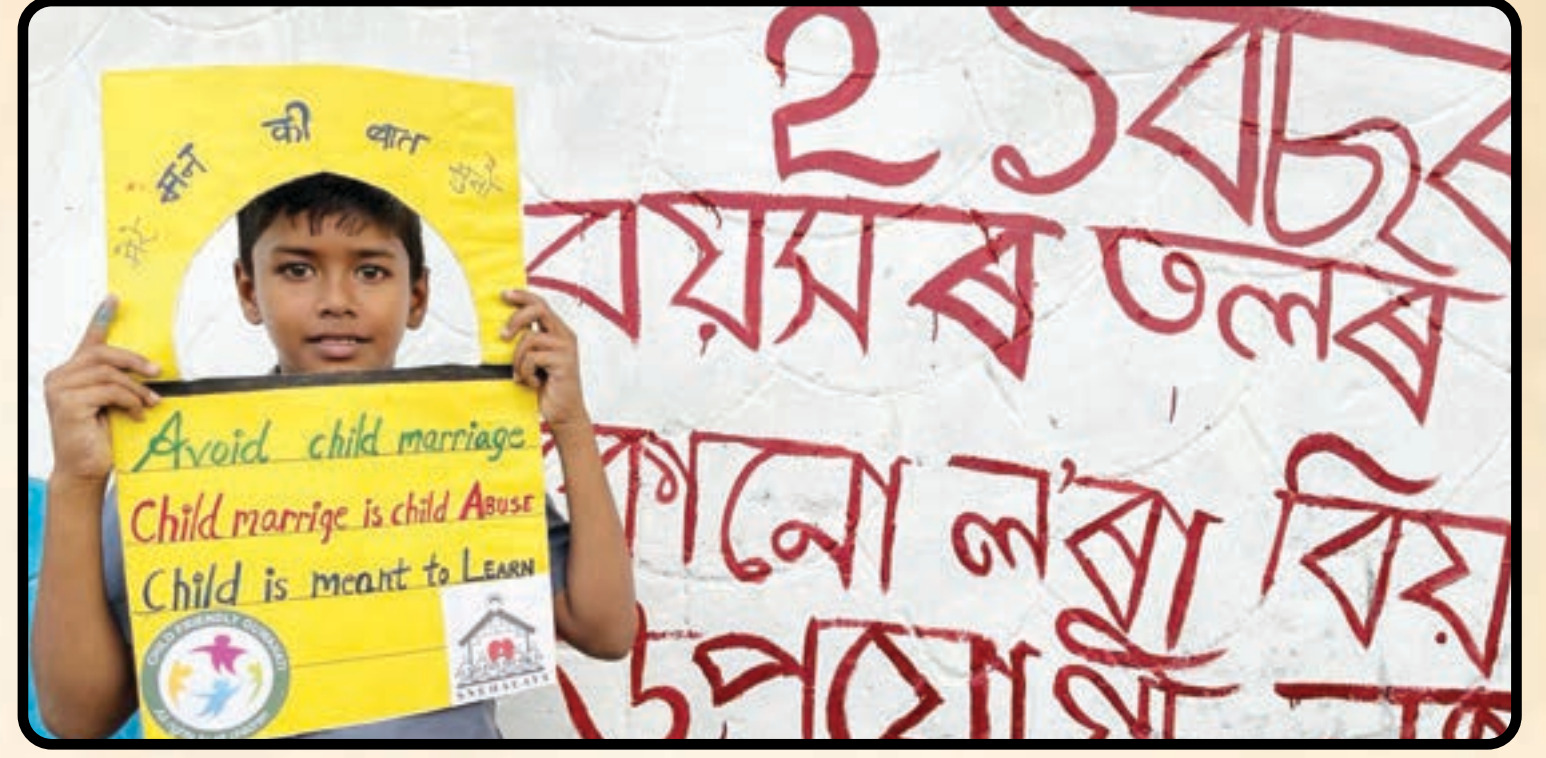 मन की बात
मेरे
Avoid child marriage
Child marrige is child ABUSE
Child is meant to LEARN
CHILD FRIENDLY GUWAHATI
SNEHALAYA
২১বছৰ
বয়সৰ তলৰ
কোনো ল'ৰা বিয়
উপযোগী